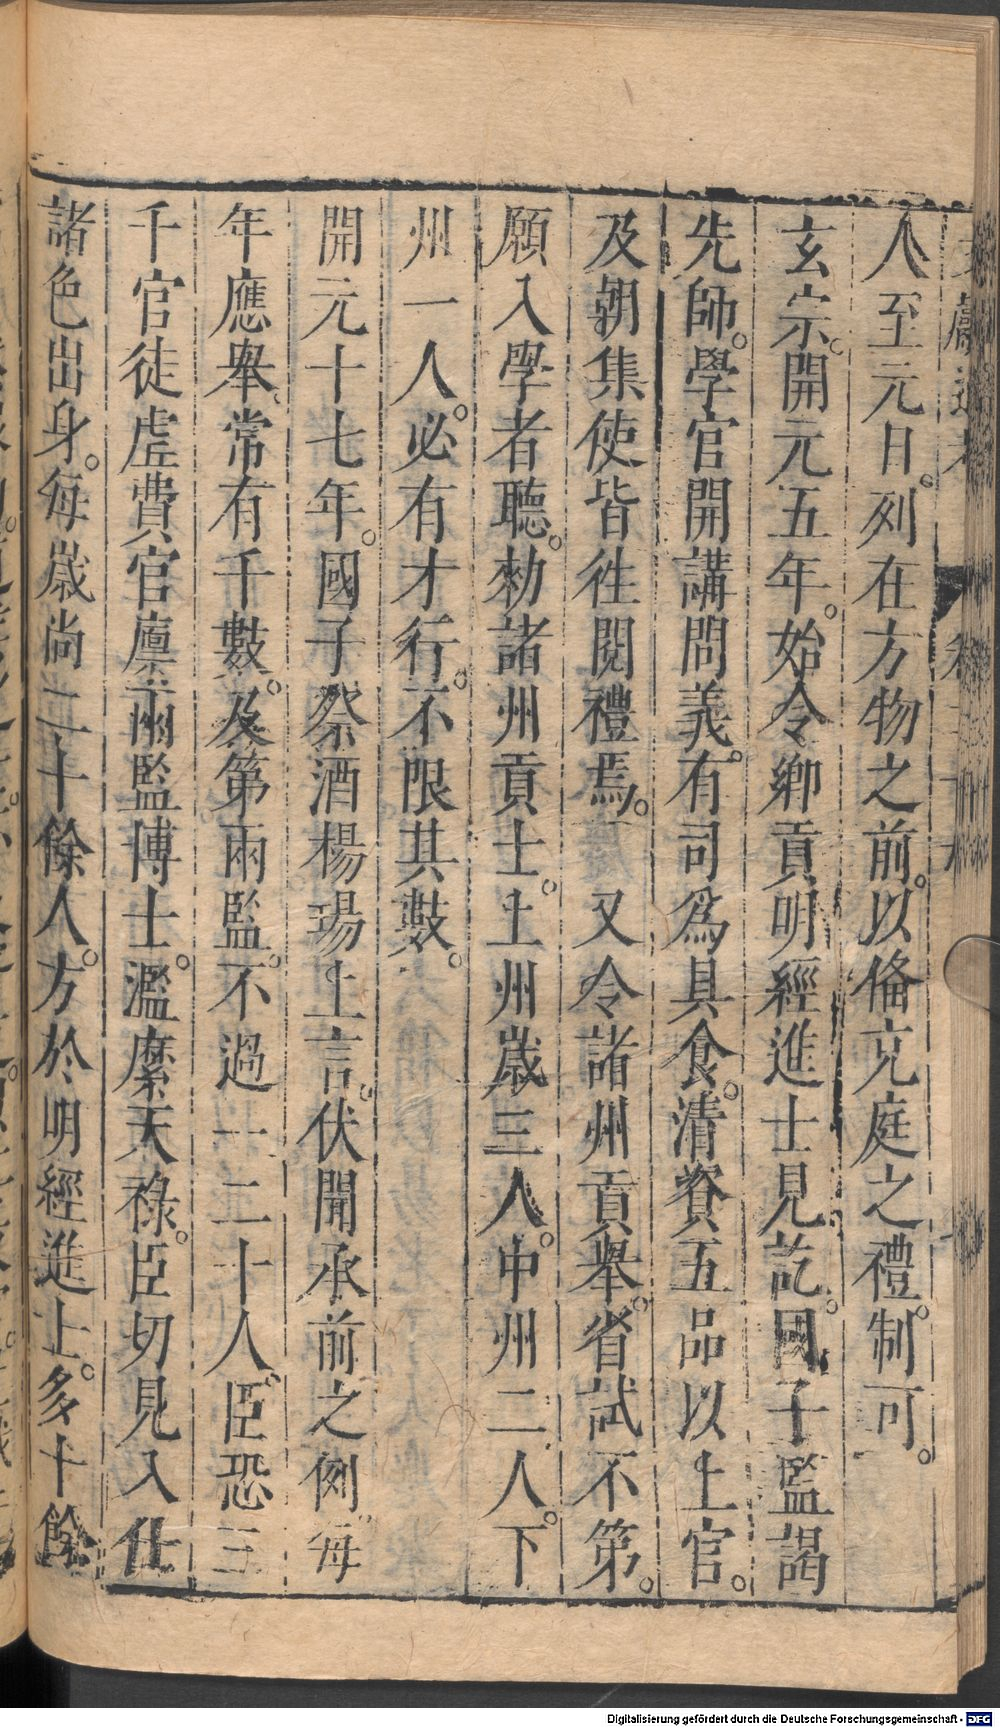 人至元日。列在方物之前。以俻充庭之禮。制可。
玄宗。開元五年。始令鄉貢明經進士見訖。國子監謁
先師。學官開講問義。有司爲具食。清資五品以上官。
及朝集使皆徃閱禮焉。又令諸州貢舉。省試不第。
願入學者聽。勑諸州貢士。上州歲三人。中州二人。下
州一人。必有才行。不限其數。
開元十七年。國子祭酒楊瑒上言。伏聞承前之例。每
年應舉。常有千數。及第兩監。不過一二十人。臣恐三
千官徒虛費官廩。兩監博士。濫縻天祿。臣切見入仕
諸色出身。每歲尚二千餘人。方於明經進士。多十餘
Digitalisierung gefördert durch die Deutsche Forschungsgemeinschaft - DFG